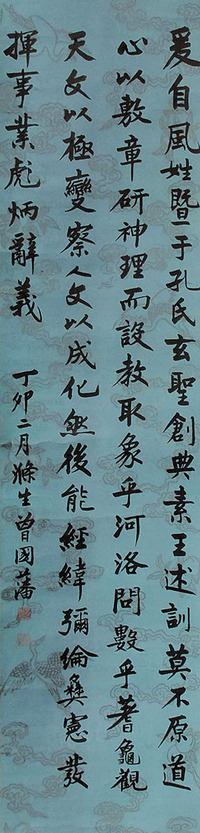 爰自風姓暨于孔氏玄聖創典素王述訓莫不原道
心以敷章研神理而設教取象乎河洛問數乎蓍龜觀
天文以極變察人文以成化然後能經緯彌綸彝憲發
揮事業彪炳辭義
丁卯二月滌生曾國藩